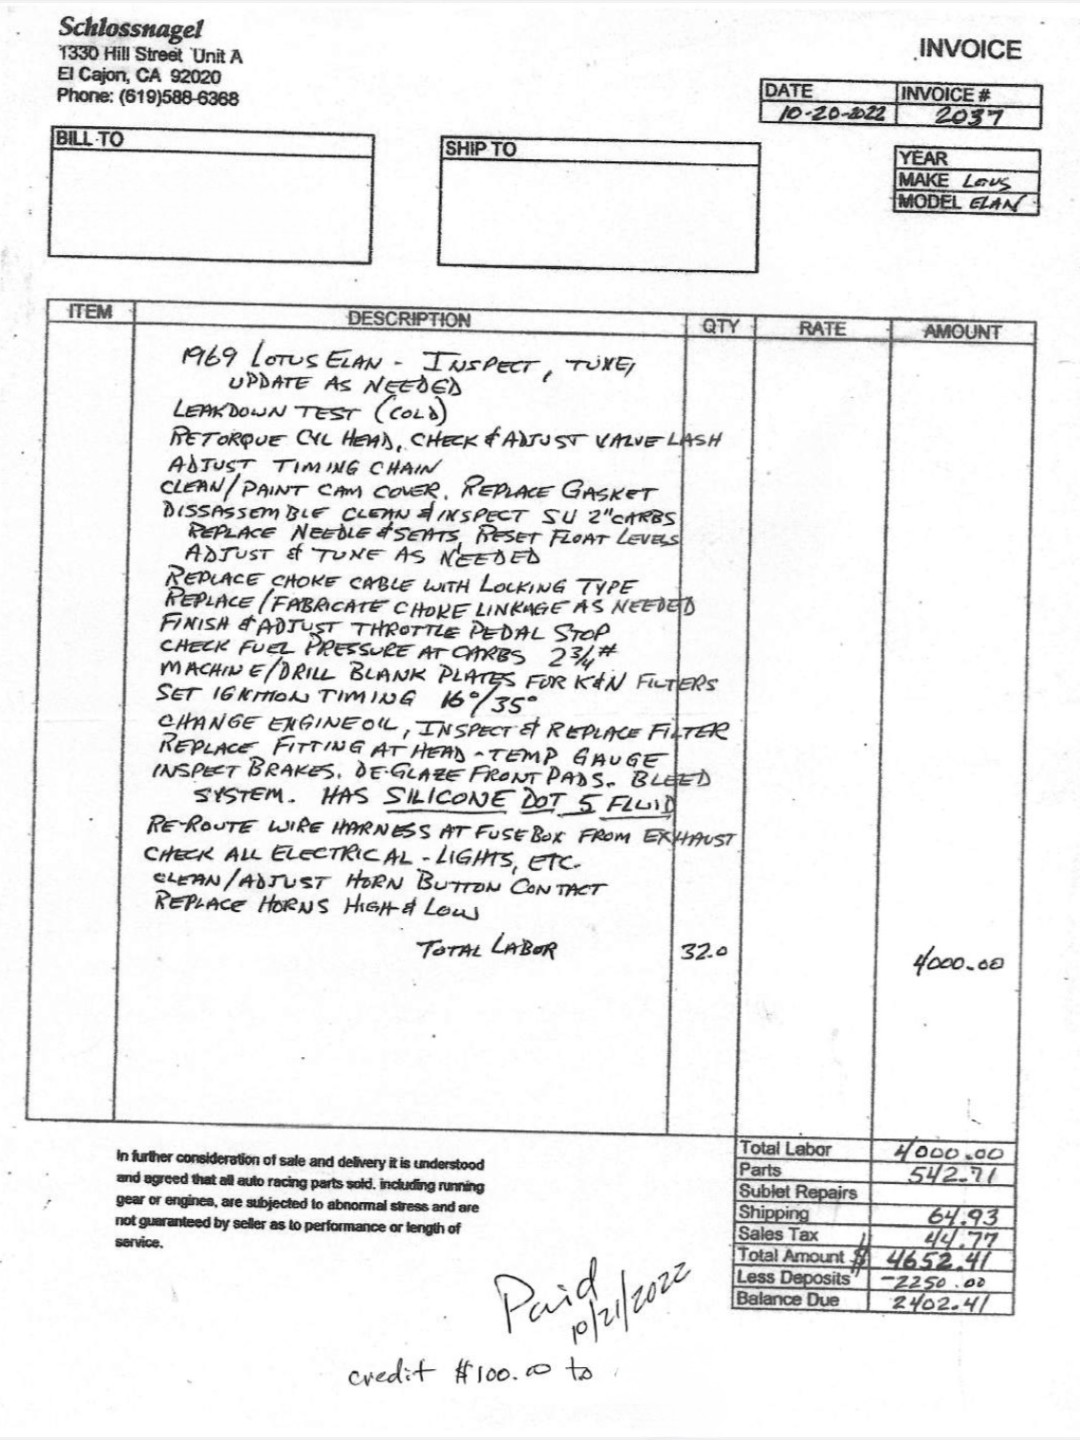 Schlossnagel
1330 Hill Street Unit A
El Cajon, CA 92020
Phone: (619)588-6368
INVOICE
DATE INVOICE #
10-20-2022 2037
BILL TO
SHIP TO
YEAR
MAKE LOTUS
MODEL ELAN
ITEM DESCRIPTION QTY RATE AMOUNT
1969 LOTUS ELAN - INSPECT, TUNE,
UPDATE AS NEEDED
LEAKDOWN TEST (COLD)
RETORQUE CYL HEAD, CHECK & ADJUST VALVE LASH
ADJUST TIMING CHAIN
CLEAN/PAINT CAM COVER. REPLACE GASKET
DISSASSEMBLE CLEAN & INSPECT SU 2" CARBS
REPLACE NEEDLE & SEATS, RESET FLOAT LEVELS
ADJUST & TUNE AS NEEDED
REPLACE CHOKE CABLE WITH LOCKING TYPE
REPLACE/FABRICATE CHOKE LINKAGE AS NEEDED
FINISH & ADJUST THROTTLE PEDAL STOP
CHECK FUEL PRESSURE AT CARBS 2 3/4 #
MACHINE/DRILL BLANK PLATES FOR K&N FILTERS
SET IGNITION TIMING 16°/35°
CHANGE ENGINE OIL, INSPECT & REPLACE FILTER
REPLACE FITTING AT HEAD - TEMP GAUGE
INSPECT BRAKES. DE-GLAZE FRONT PADS. BLEED
SYSTEM. HAS SILICONE DOT 5 FLUID
RE-ROUTE WIRE HARNESS AT FUSE BOX FROM EXHAUST
CHECK ALL ELECTRICAL - LIGHTS, ETC.
CLEAN/ADJUST HORN BUTTON CONTACT
REPLACE HORNS HIGH & LOW
TOTAL LABOR 32.0 4000.00
In further consideration of sale and delivery it is understood
and agreed that all auto racing parts sold. including running
gear or engines, are subjected to abnormal stress and are
not guaranteed by seller as to performance or length of
service.
Total Labor 4000.00
Parts 542.71
Sublet Repairs
Shipping 64.93
Sales Tax 44.77
Total Amount $ 4652.41
Less Deposits -2250.00
Balance Due 2402.41
Paid
10/21/2022
credit $100.00 to